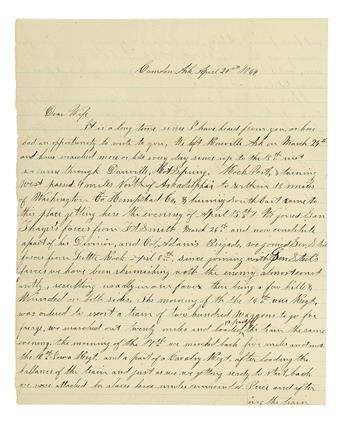 Camden Ark April 20th 1864
Dear Wife
It is a long time since I have heard from you, or have
had an opportunity to write to you, We left Roseville Ark on March 24th
and have marched more or less every day since up to the 18th inst
we came through Danville, Hot Springs, Rock Port, & turning
West passed 6 miles North of Arkadelphia to within 15 miles
of Washington Co Hempstead Co, & turning South East came to
this place getting here the evening of April 15th. We joined Gen
Thayers forces from Ft Smith March 26th and now constitute
a part of his Division, and Col Adams Brigade, we joined Gen
forces from Little Rock Apl 8th, since joining with Gen
forces we have been skirmishing with the enemy almost const
antly, resulting usually in our favor their being a few killed &
Wounded on both sides. The morning of the 16th our Regt
was ordered to escort a train of two hundred Waggons to go for
forage, we marched out twenty miles and loaded the train the same
evening, the morning of the 17th we marched back five miles and met
the 18th Iowa Regt, and a part of a Cavalry Regt, after loading the
ballance of the train and just as we were getting ready to start back
we were attacked by
and after
the train